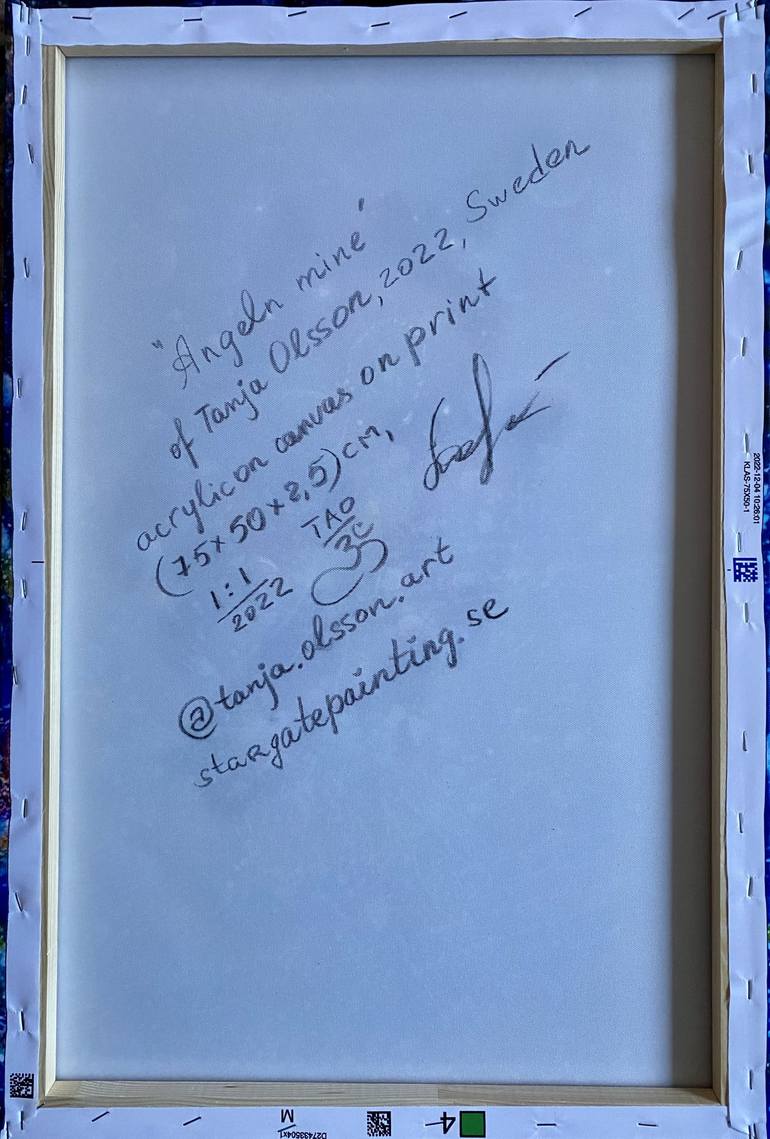 "Angeln mine"
of Tanja Olsson, 2022, Sweden
acrylic on canvas on print
(75x50x2,5) cm,
1:1
2022
TAO
@tanja.olsson.art
stargatepainting.se
2022-12-04 10:26:01
KLAS-75X50-1
M
4